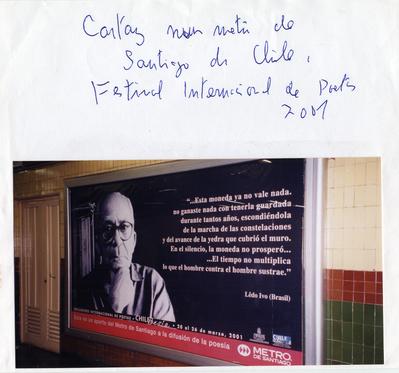 Cartaz num metrô de
Santiago do Chile,
Festival Internacional de Poetas
2001
“...Esta moneda ya no vale nada.
no ganaste nada con tenerla guardada
durante tantos años, escondiéndola
de la marcha de las constelaciones
y del avance de la yedra que cubrió el muro.
En el silencio, la moneda no prosperó...
...El tiempo no multiplica
lo que el hombre contra el hombre sustrae.”
Lêdo Ivo (Brasil)
INTERNACIONAL DE POETAS • CHILE Poesía • 20 al 26 de marzo, 2001
Este es un aporte del Metro de Santiago a la difusión de la poesía
CHILE
METRO
DE SANTIAGO